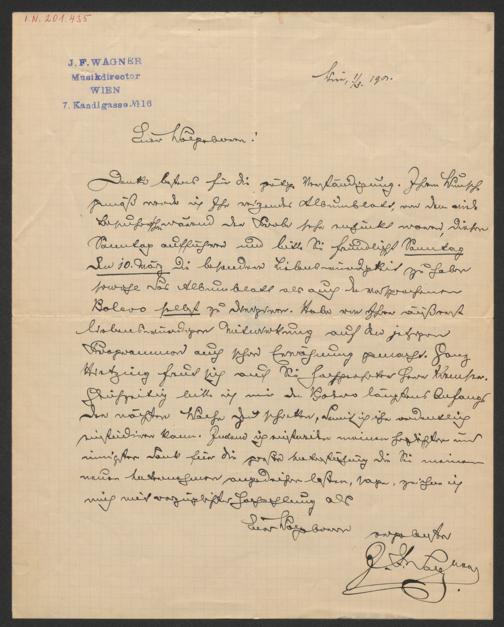 I.N. 201.435
J. F. WAGNER
Musikdirector
WIEN
7. Kandlgasse № 16
Wien, 190
Euer Wolgeboren!
Danke bestens für die Verständigung. Ihrem Wunsch
gemäß werde ich Ihr Albumblatt, von dem
der Probe sehr entzückt waren, diesen
Sonntag aufführen und bitte Sie freundlichst Sonntag
den 10. März die besondere Liebenswürdigkeit zu haben
sowohl das Albumblatt als auch den versprochenen
Bolero selbst zu dirigiren. Habe von Ihrer äußerst
liebenswürdigen Mitwirkung auf den
Programmen auch schon Erwähnung gemacht. Ganz
freut sich auf Sie Herr
Gleichzeitig bitte ich mir den Bolero längstens Anfangs
der nächsten Woche zu schicken, damit ich ihn ordentlich
einstudieren kann. Indem ich meinen herzlichsten und
innigsten Dank für die Unterstützung die Sie meinem
neuen Unternehmen angedeihen lassen, sage, zeichne ich
mich mit vorzüglichster Hochachtung als
Euer Wolgeboren ergebenster
J. F. Wagner